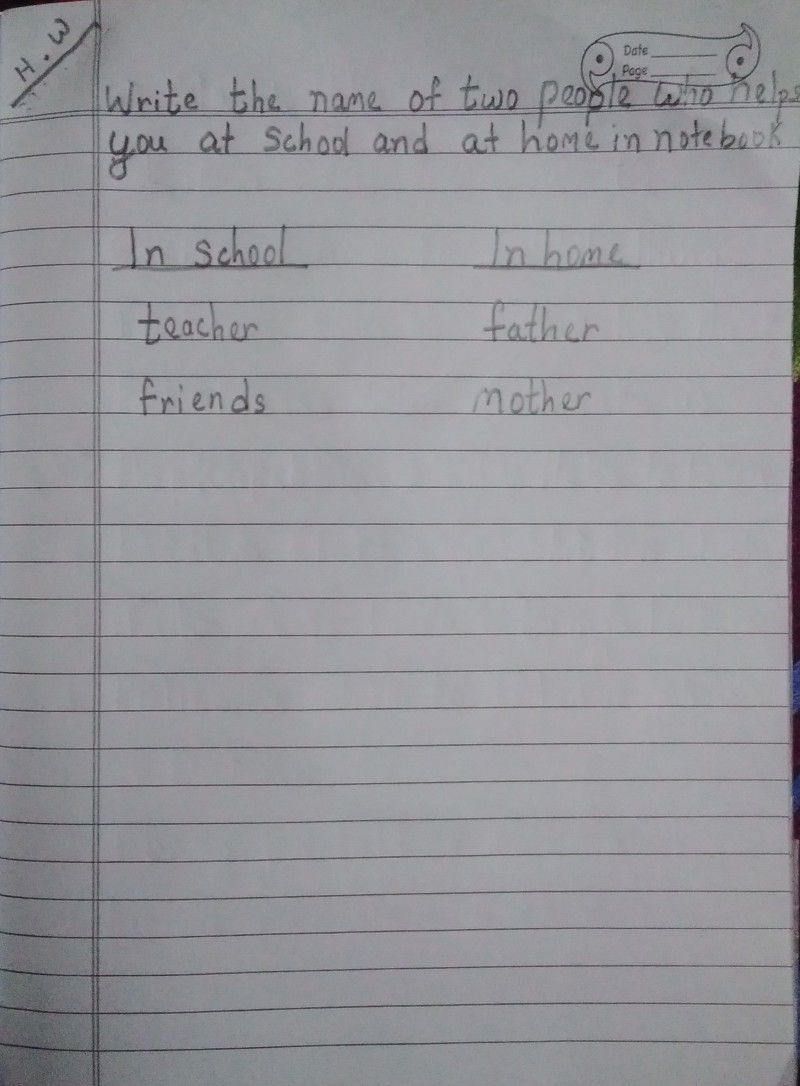 H.W
Date
Page
Write the name of two people who helps
you at School and at home in notebook
In school In home
teacher father
friends mother